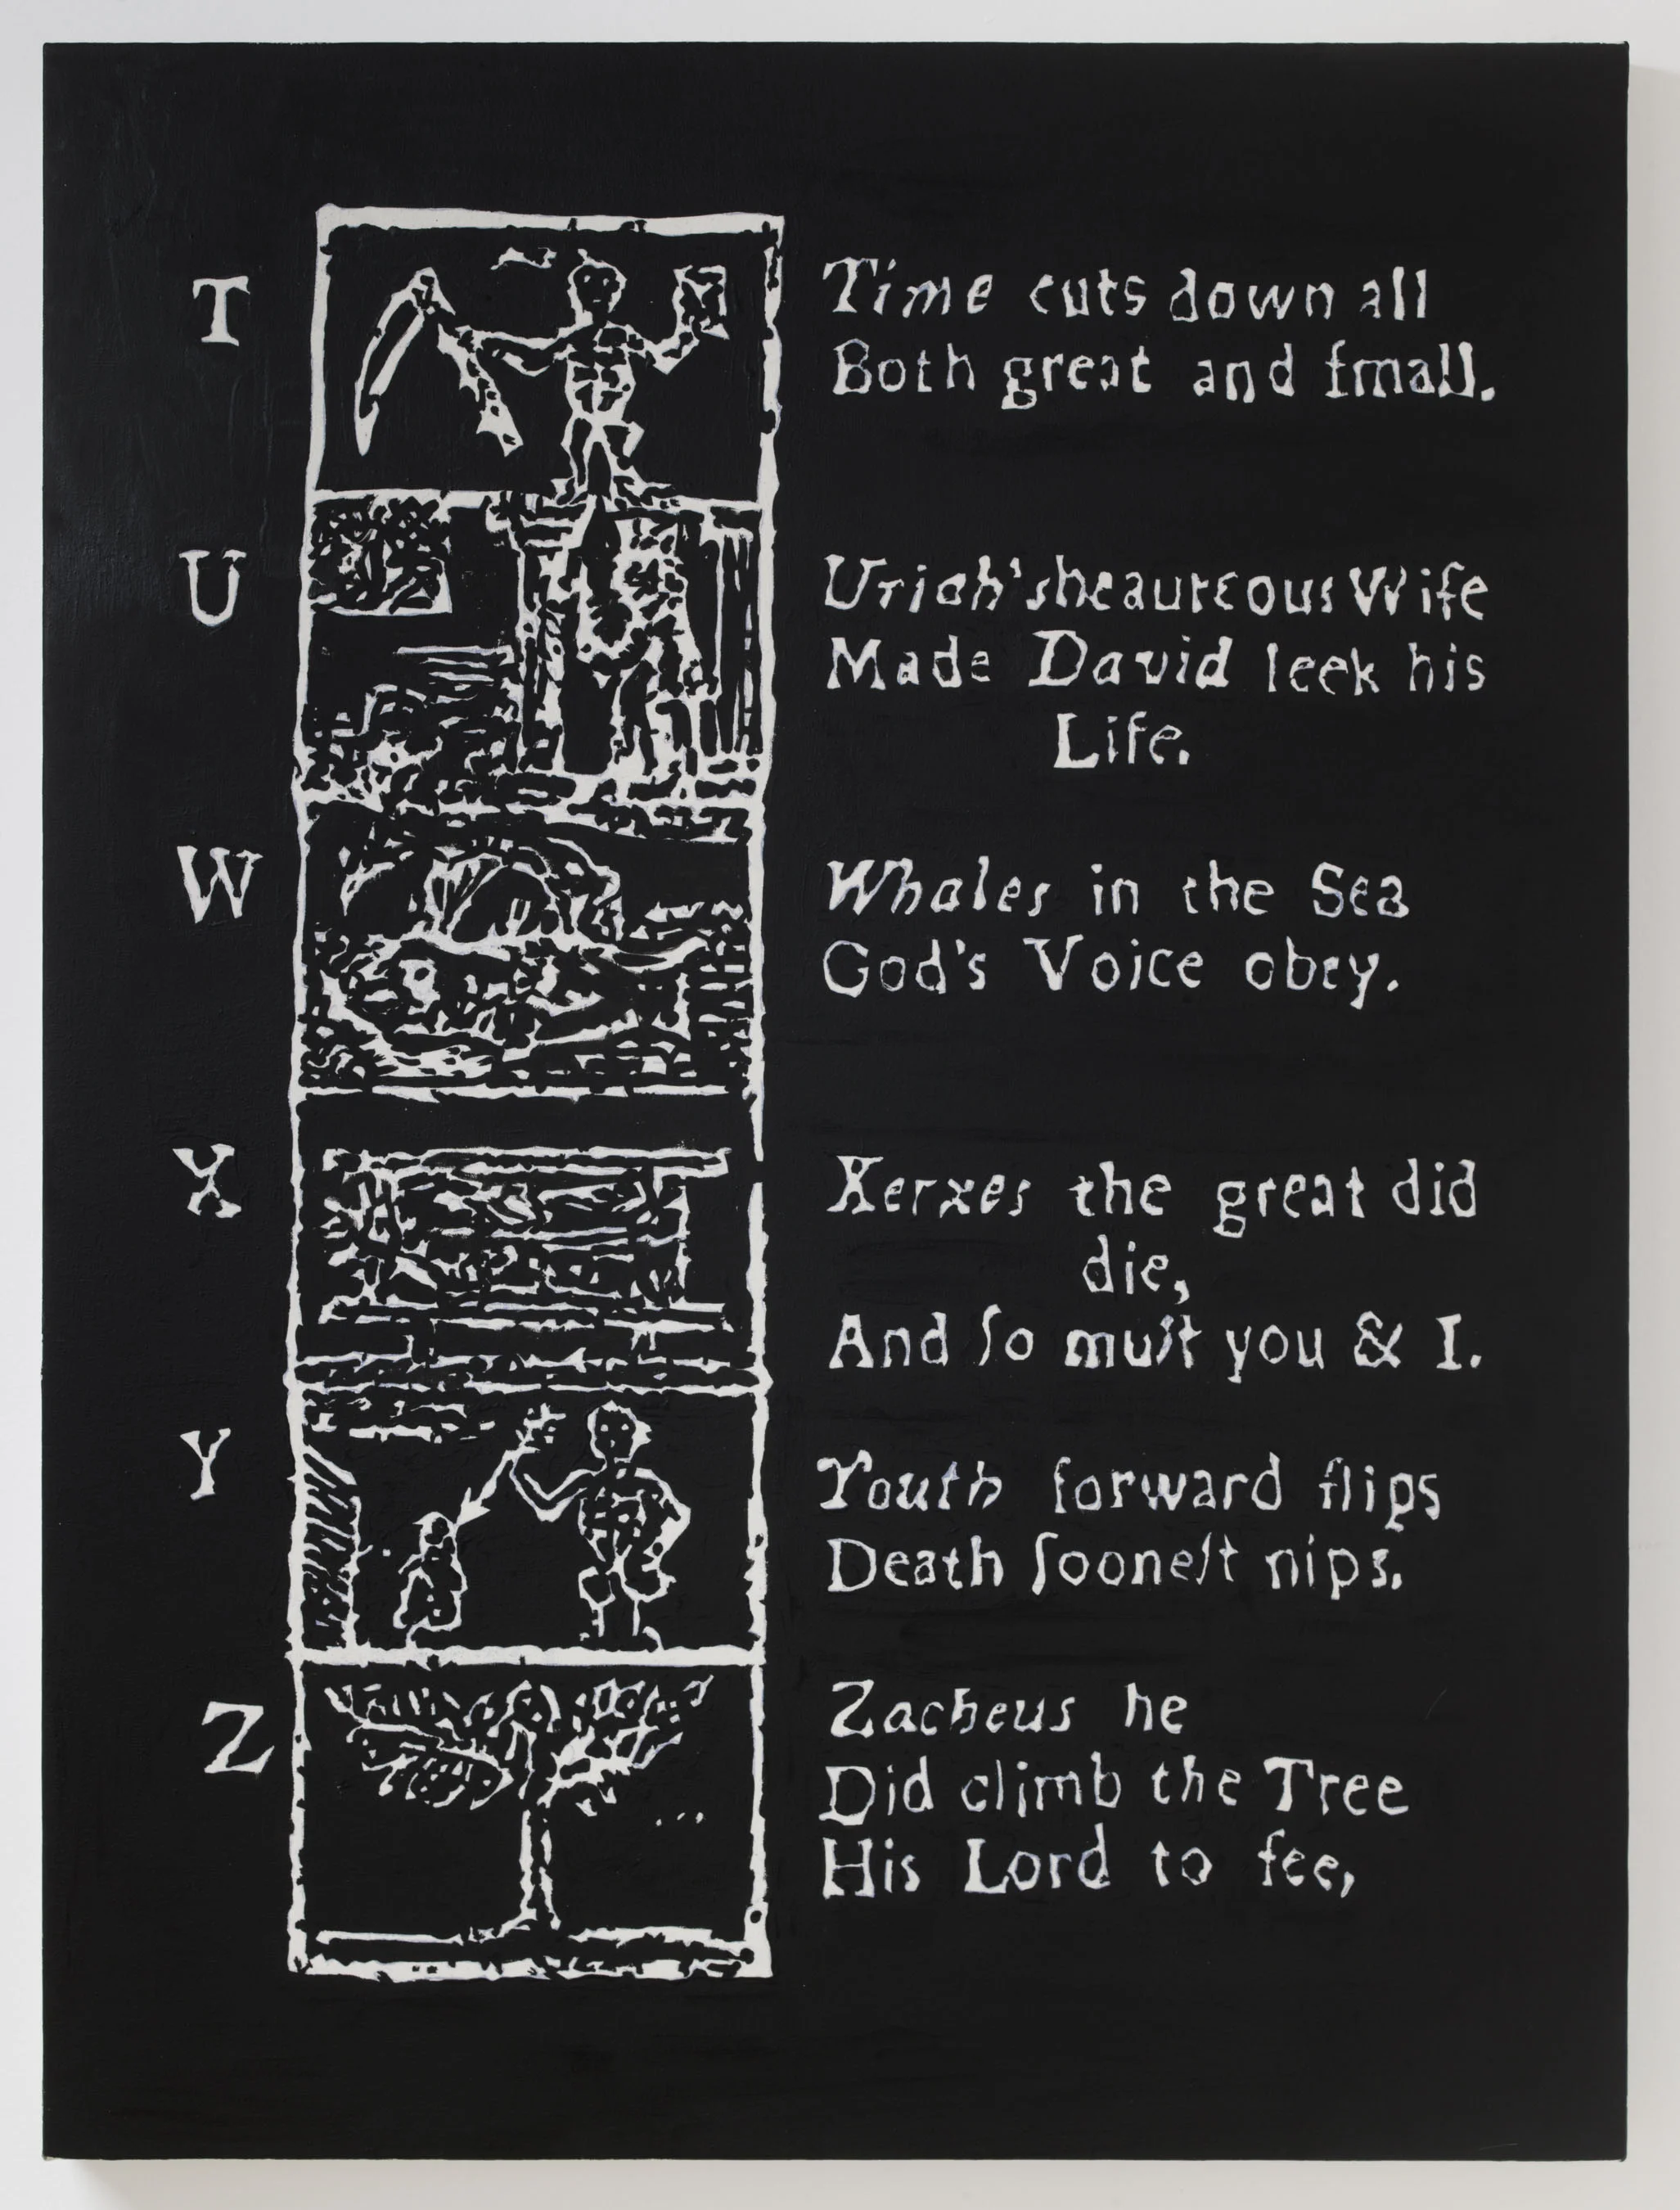 T
Time cuts down all
Both great and fmall.
U
Uriah's heauteous Wife
Made David leek his
Life.
W
Whales in the Sea
God's Voice obey.
X
Xerxes the great did
die,
And ſo muſt you & I.
Y
Youth forward flips
Death ſooneſt nips.
Z
Zacheus he
Did climb the Tree
His Lord to fee,